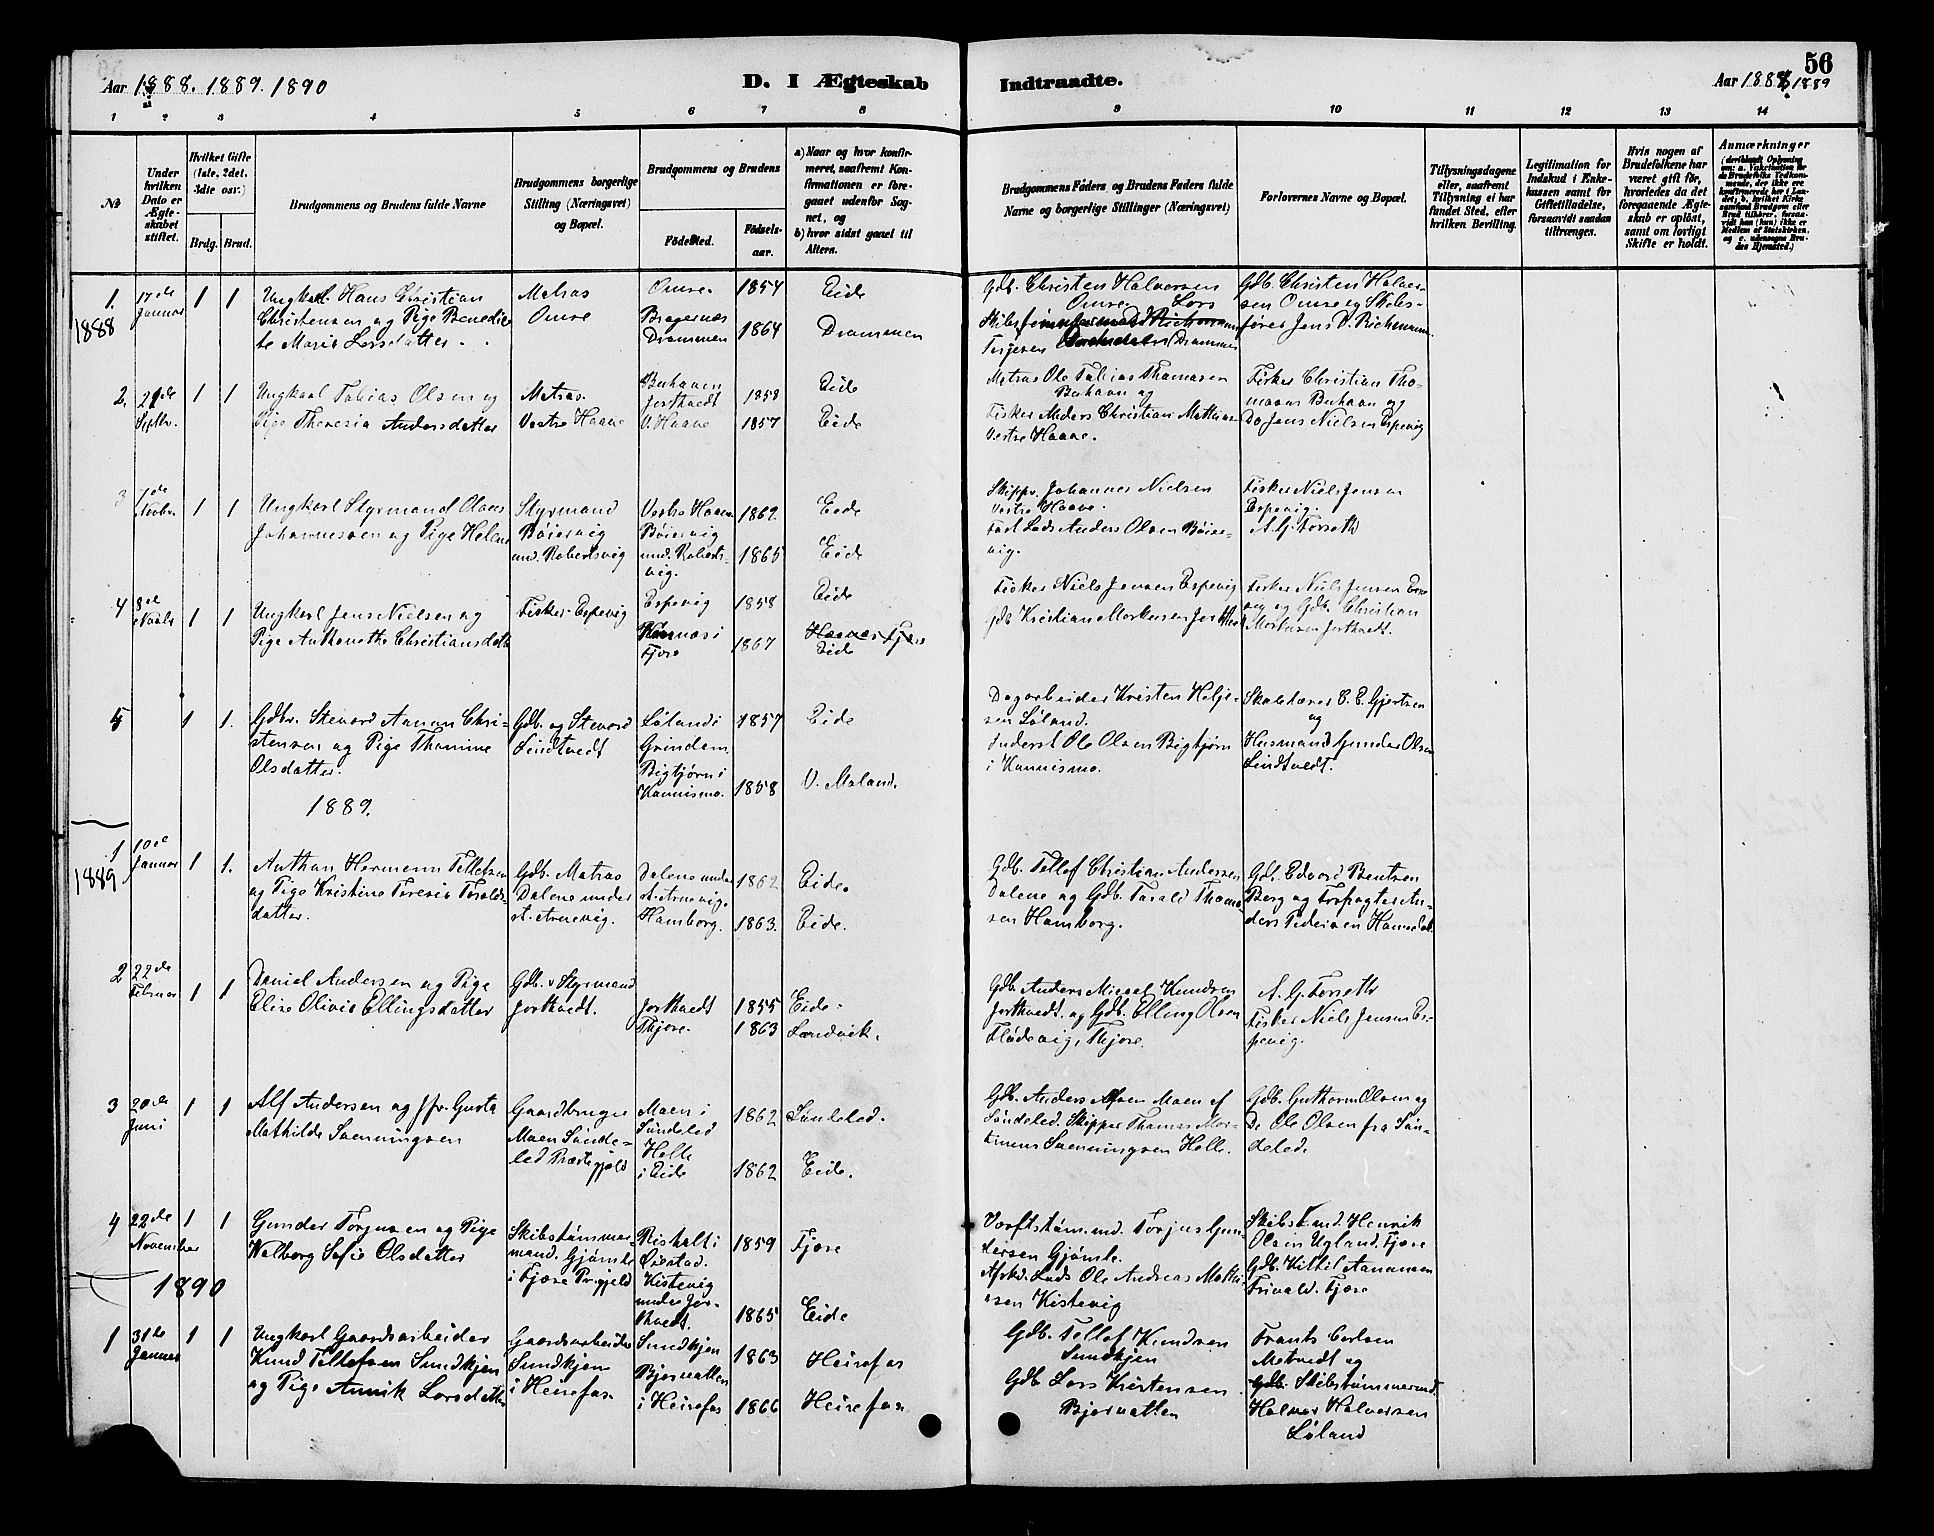 56
Aar 1888. 1889. 1890
D. I Ægteskab
Indtraadte.
Aar 1888 1889
1 2 3 4 5 6 7 8
9 10 11 12 13 14
No
Under hvilken Dato er Ægteskabet stiftet.
Hvilket Gifte (1ste, 2det, 3die osv.)
Brdg. Brud.
Brudgommens og Brudens fulde Navne
Brudgommens borgerlige Stilling (Næringsvei) og Bopæl.
Brudgommens og Brudens
Fødested.
Fødselsaar.
a) Naar og hvor konfirmeret, saafremt Konfirmationen er foregaaet udenfor Sognet, og
b) hvor sidst gaaet til Alters.
Brudgommens Faders og Brudens Faders fulde Navne og borgerlige Stillinger (Næringsvei)
Forlovernes Navne og Bopæl.
Tillysningsdagene eller, saafremt Tillysning ei har fundet Sted, efter hvilken Bevilling.
Legitimation for Indskud i Enkekassen samt for Giftetilladelse, forsaavidt saadan tiltrænges.
Hvis nogen af Brudefolkene har været gift før, hvorledes da det foregaaende Ægteskab er opløst, samt om lovligt Skifte er holdt.
Anmærkninger
1. 17de 1 1 Ungkarl Hans Christian
Januar Christensen og Pige Benedic
1888 te Marie Larsdatter.
Matros
Omre
Omre 1854 Eide
Bragernæs
Drammen 1864 Drammen
Gdb. Christen Halvorsen
Omre Lars
Terjesen (Drammen
Gdb Christen Halvor-
sen Omre og Skibs-
fører Jens D. Richmann
2. 21de 1 1 Ungkarl Tobias Olsen og
Septbr. Pige Theresia Andersdatter
Matros.
Vestre Haave
Buhaven
Jortvedt 1858 Eide
V. Haave 1857 Eide
Matros Ole Tobias Thomasen
Buhaven og
Fisker Anders Christian Mathias-
Vestre Haave.
Fisker Christian Tho-
masen Buhavn og
Do Jens Nielsen Espevig
3 1de 1 1 Ungkarl Styrmand Olaus
Novbr. Johannessen og Pige Helene
Styrmand
Bøiesvig
und. Robertsvig
Vestre Haave 1862. Eide
Bøiesvig
und. Roberts- 1865 Eide
vig.
Skippr. Johannes Nielsen
Vestre Haave.
Lods Anders Olsen Bøies-
vig.
Fisker Niels Jensen
Espevig.
A. G. Forseth
4 8de 1 1 Ungkarl Jens Nielsen og
Novbr Pige Anthonette Christiansdatt
Fisker Espevig
Espevig 1858 Eide
Fjære 1867 Eide
Fisker Niels Jensen Espevig
Gdb Kristian Morkusen Jortve
Fisker Niels Jensen Espe
vig og Gdb. Christian
Jorthvedt.
5 1 1. Gdbr. Steward Aanon Chri-
stensen og Pige Thomine
Olsdatter.
Gdb. og Steward
Lindtvedt
Løland i 1857 Eide
Grindem
Bigtjørn i
Kannismo. 1858 V. Moland.
Dagarbeider Kristen Helje-
sen Løland.
Inderst Ole Olsen Bigtjørn
i Kannismo.
Skolelærer E. E. Gjertsen
og
Husmand Gunder Olsen
Lindtvedt.
1889.
1 10de 1 1. Anthon Hermann Tellefsen
1889 Januar og Pige Kristine Teresia Tarolds-
datter.
Gdb. Matros
Dalene under
St. Arnevig.
Dalene under 1862 Eide.
St. Arnevig.
Hamborg. 1863. Eide.
Gdb. Tellef Christian Andersen
Dalene og Gdb. Tarald Thoma-
sen Hamborg.
Gdb. Edvard Bentsen
Berg og Forpagter An-
ders Pedersen
2 22de 1 1 Daniel Andersen og Pige
Februar Elise Olivia Ellingsdatter
Gdb. & Styrmand
Jorthvedt.
Jorthvedt 1855 Eide.
Thjøre. 1863 Landvik.
Gdb. Anders Mickel Knudsen
Jorthvedt. og Gdb. Elling Olsen
Flødevig, Thjøre.
A. G. Forseth
Fisker Niels Jensen Es-
pevig.
3 20de 1 1 Alf Andersen og Jfr. Gusta
Juni Mathilde Svenningsen
Gaardbruger
Moen Sønde-
led Præstegjeld
Moen i 1862 Søndeled.
Søndeled
Helle
i Eide 1862 Eide.
Gdb. Anders Moen af
Søndeled. Skipper Thomas Mor-
tinius Svenningsen Helle.
Gdb. Guthorm Olsen og
Do Ole Olsen fra Søn-
deled.
4 22de 1 1 Gunder Torjusen og Pige
November Walborg Sofie Olsdatter
Skibstømmer-
mand. Gjømle
i Fjære Prgjeld
Risholt i 1859 Fjære
Øiestad.
Kistevig
under Jor-
thvedt. 1865 Eide
Værftstøm.md. Torjus Gun-
dersen Gjømle.
Afskd. Lods Ole Andreas Mathi-
sen Kistevig
Henrik
Olsen Ugland. Fjære
Gdb. Kittil Aanonsen
Frivold. Fjære
1890
1 31te 1 1 Ungkarl Gaardsarbeider
Januar Knud Tellefsen Sundkjen
og Pige Annik Larsdatter
Gaardsarbeider
Sundkjen
i Heirefos.
Sundkjen 1863 Heirefos
Bjorvatten
i Heirefos 1866 Heirefos.
Gdb. Tellef Knudsen
Sundkjen
Gdb. Lars Kristensen
Bjorvatten
Frants Carlsen
Metvedt og
Skibstømmermd.
Halvor Halvorsen
Løland